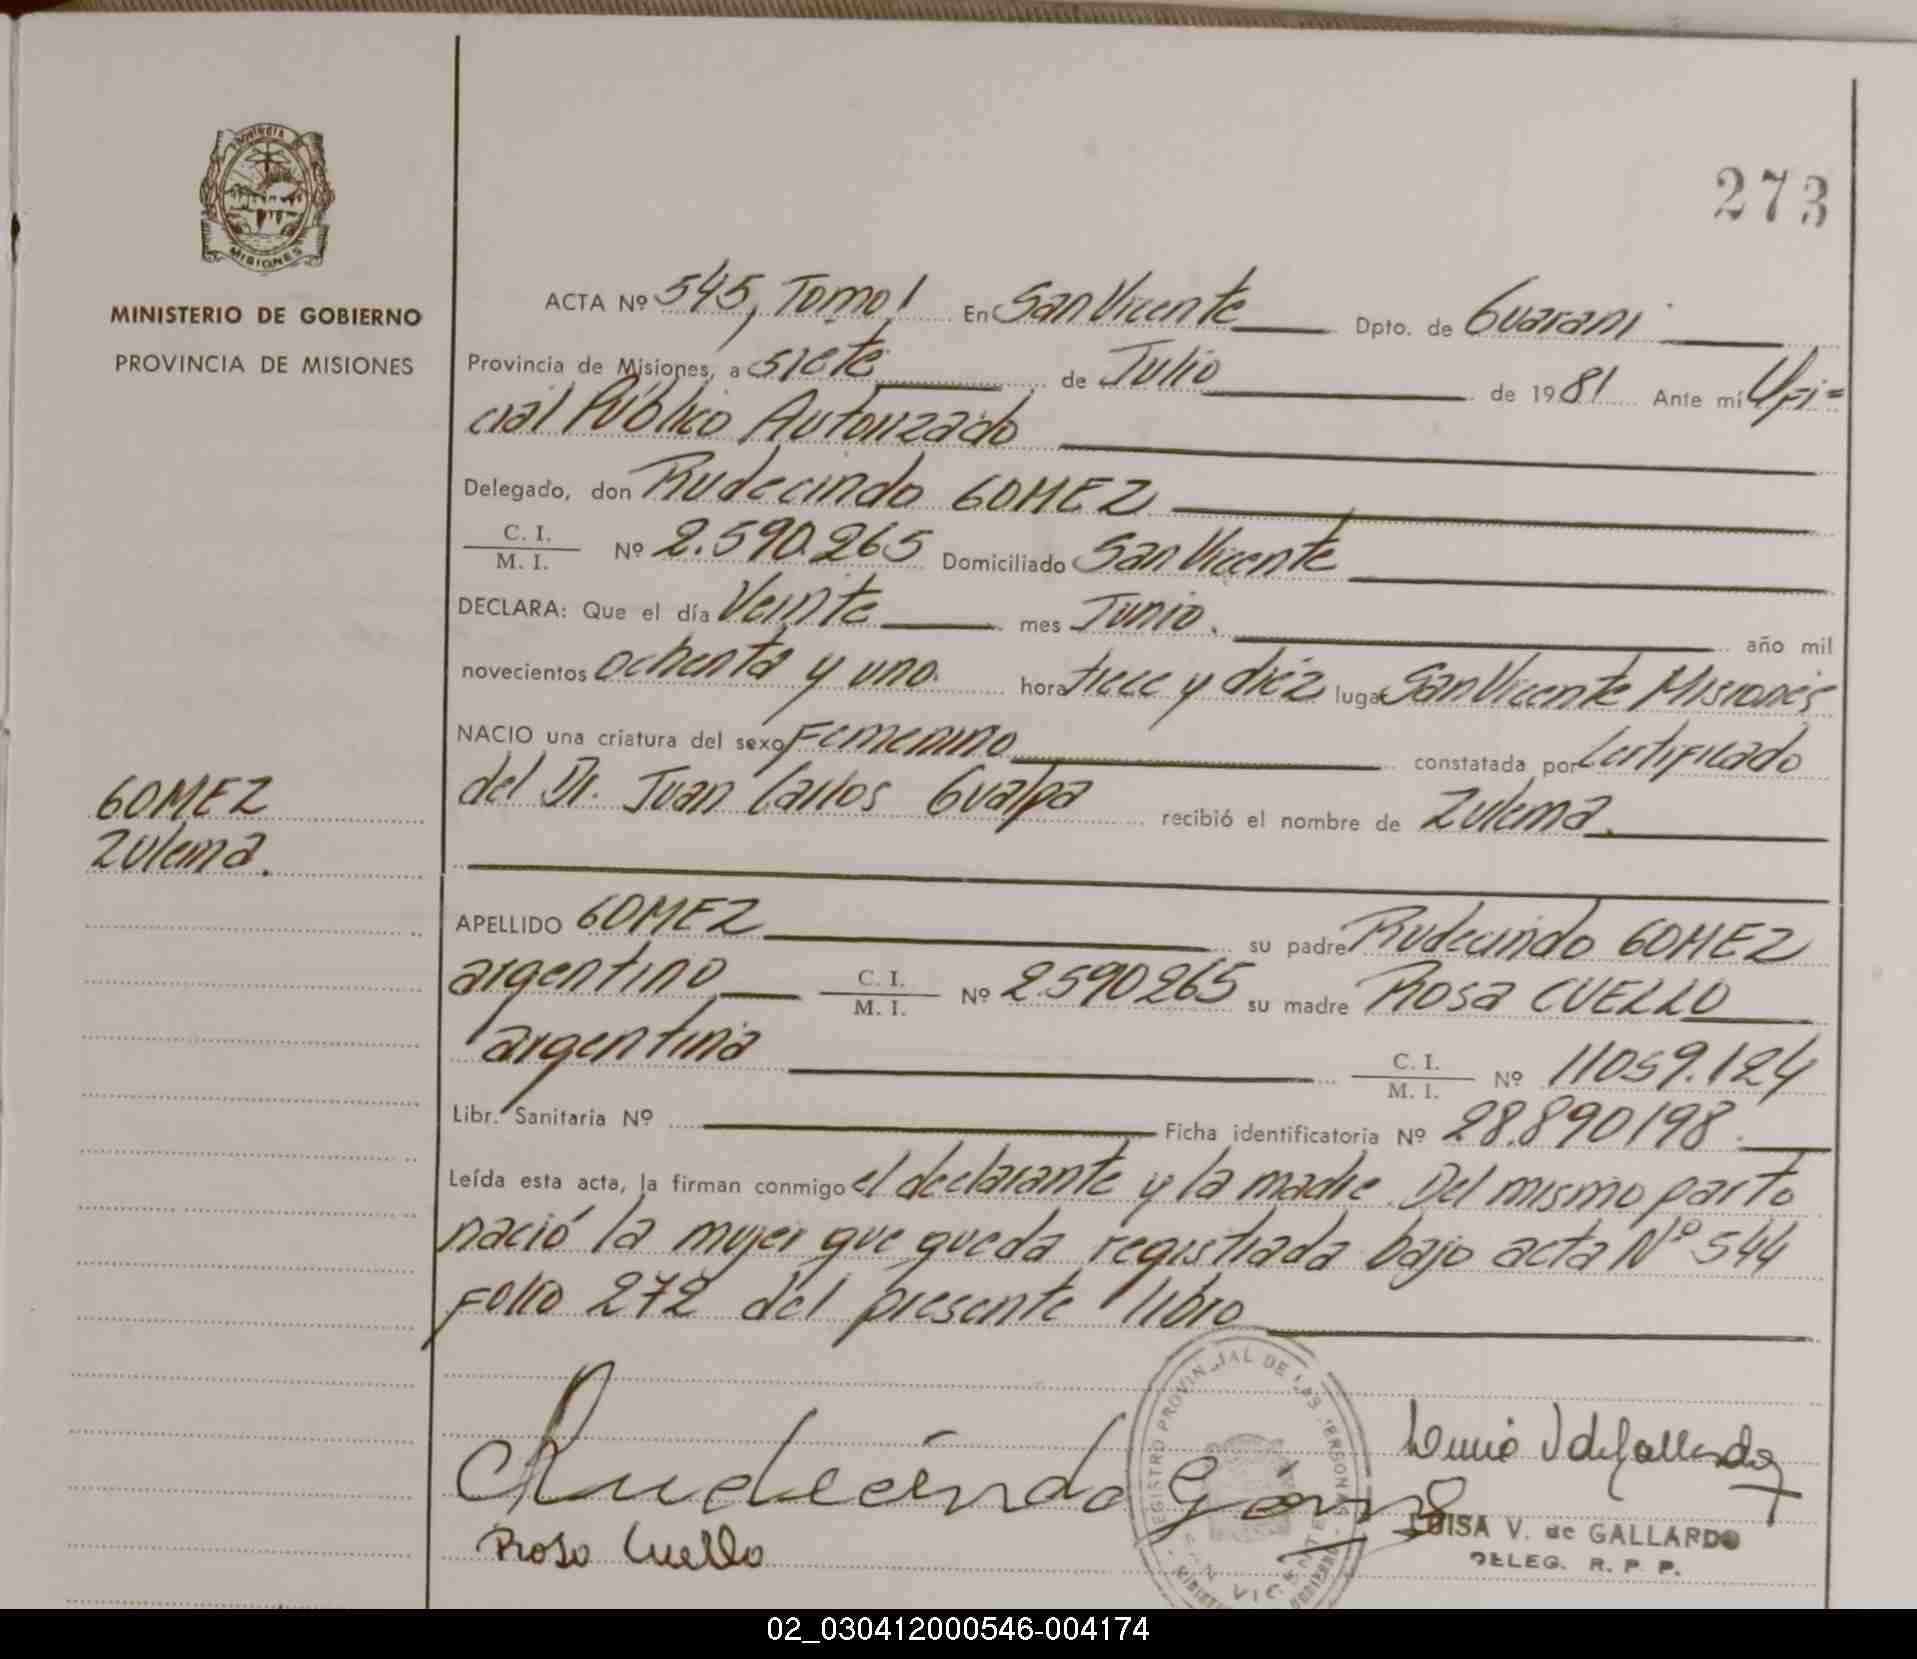 PROVINCIA
MISIONES
MINISTERIO DE GOBIERNO
PROVINCIA DE MISIONES
GOMEZ
Zulema.
273
ACTA Nº 545, Tomo I En San Vicente Dpto. de Guarani
Provincia de Misiones, a siete de Julio de 1981 Ante mí Ofi=
cial Público Autorizado
Delegado, don Rudecindo GOMEZ
C. I. / M. I. Nº 2.590.265 Domiciliado San Vicente
DECLARA: Que el día Veinte mes Junio. año mil
novecientos ochenta y uno. hora trece y diéz lugar San Vicente Misiones
NACIO una criatura del sexo Femenino constatada por Certificado
del Dr. Juan Carlos Gualpa recibió el nombre de Zulema.
APELLIDO GOMEZ su padre Rudecindo GOMEZ
argentino C. I. / M. I. Nº 2.590265 su madre Rosa CUELLO
argentina C. I. / M. I. Nº 11059.124
Libr. Sanitaria Nº Ficha identificatoria Nº 28.890198.
Leída esta acta, la firman conmigo el declarante y la madre. Del mismo parto
nació la mujer que queda registrada bajo acta Nº 544
Folio 272 del presente libro
Rudecindo Gomez
Rosa Cuello
REGISTRO PROVINCIAL DE LAS PERSONAS
SAN VICENTE
Luisa V de Gallardo
LUISA V. de GALLARDO
DELEG. R. P. P.
02_030412000546-004174